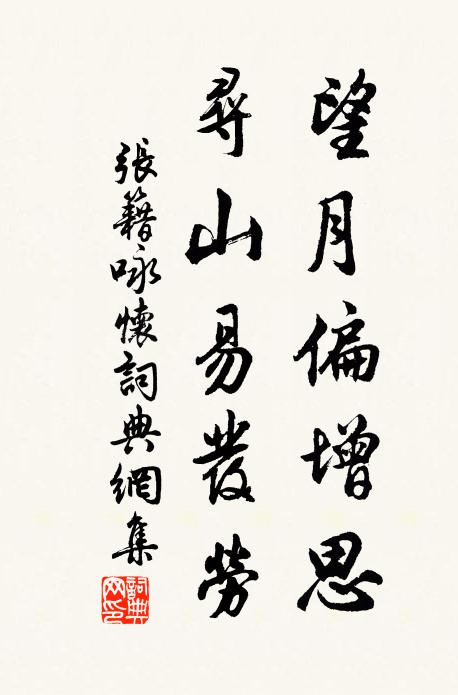 望月偏增思
尋山易發勞
張籍咏懷詞典網集
詞典网印